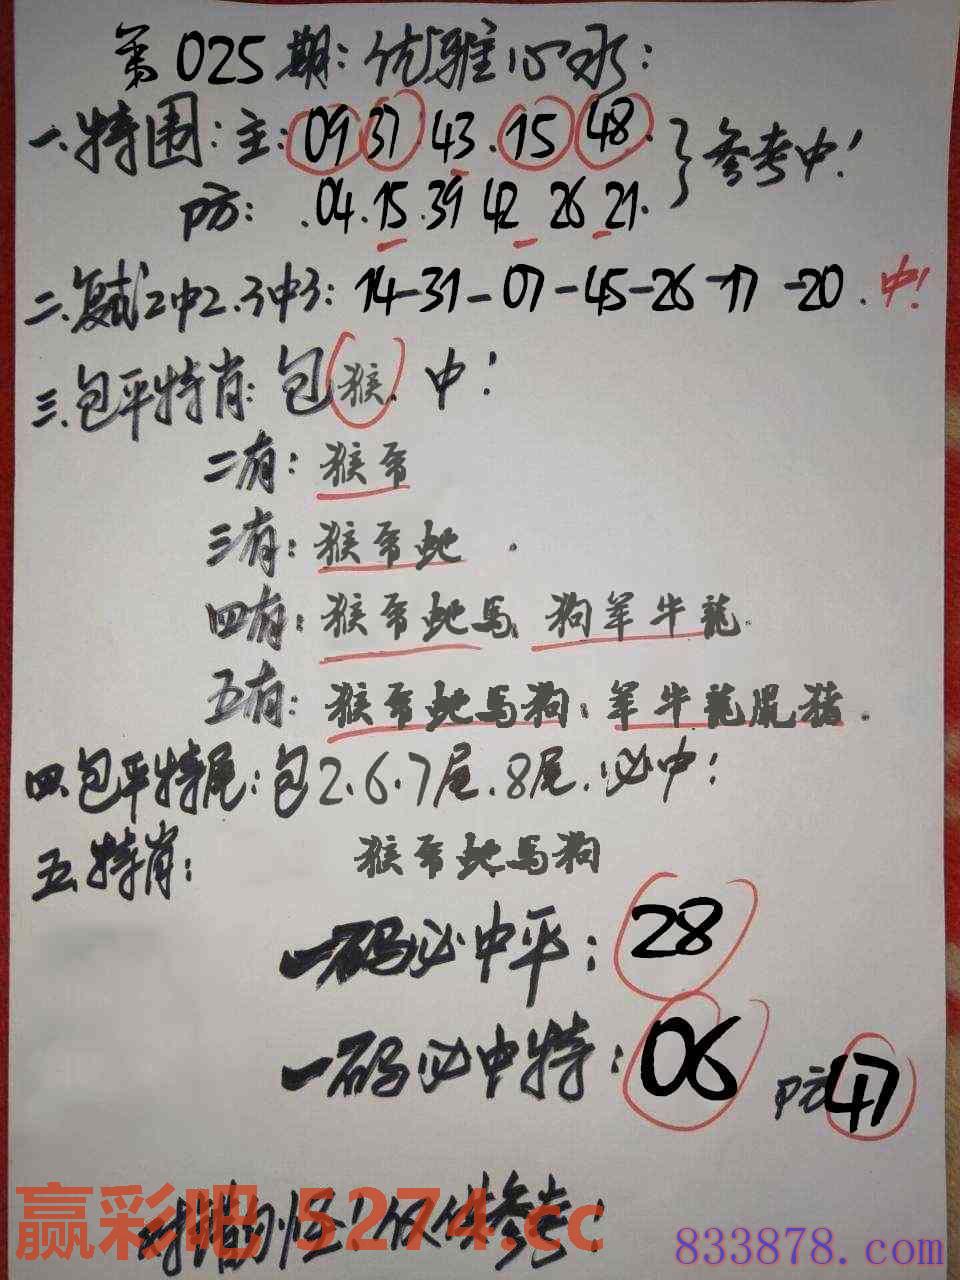 第025期:优雅心水:
一.特围:主:09 37 43.15 48.}参考中!
防:.04.15.39 42 26 21.
二.复式2中2.3中3:14-31-07-45-26-17-20.中!
三.包平特肖:包猴.中!
二有:猴
三有:猴 蛇.
四有:猴 蛇马.狗羊牛龍.
五有:猴 蛇马狗.羊牛龍鼠猪.
四.包平特尾:包2.6.7尾.8尾.必中!
五.特肖:猴 蛇马狗
一码必中平:28
一码必中特:06 防47
对错勿怪!仅供参考!
赢彩吧 5274.cc
833878.com